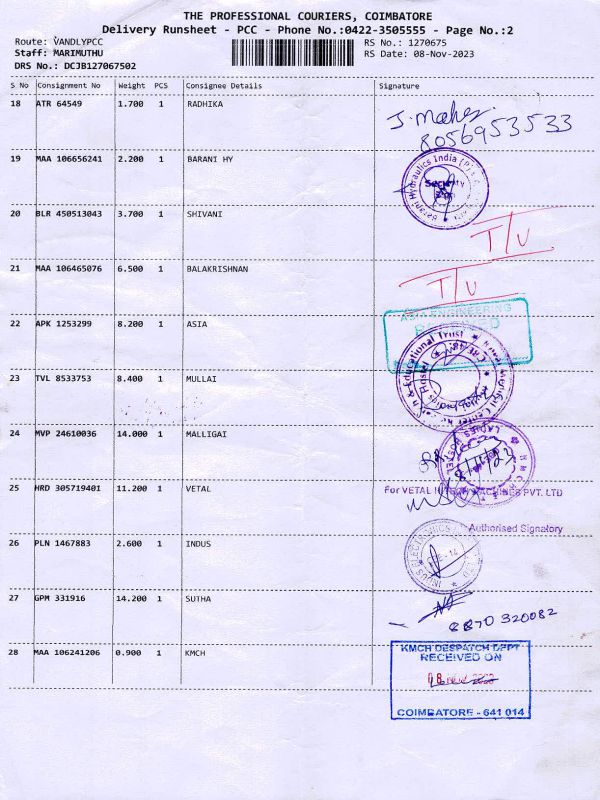 THE PROFESSIONAL COURIERS, COIMBATORE
Delivery Runsheet - PCC - Phone No.:0422-3505555 - Page No.:2
Route: VANDLYPCC
RS No.: 1270675
Staff: MARIMUTHU
RS Date: 08-Nov-2023
DRS No.: DCJB127067502
S No Consignment No Weight PCS Consignee Details Signature
18 ATR 64549 1.700 1 RADHIKA
8056953533
19 MAA 106656241 2.200 1 BARANI HY
Barani Hydraulics India (P)
Security
20 BLR 450513043 3.700 1 SHIVANI
T/U
21 MAA 106465076 6.500 1 BALAKRISHNAN
T/U
ASIA ENGINEERING
RECEIVED
22 APK 1253299 8.200 1 ASIA
Educational Trust
23 TVL 8533753 8.400 1 MULLAI
24 MVP 24610036 14.000 1 MALLIGAI
LADIES HOSTEL
8/11/23
25 HRD 305719401 11.200 1 VETAL
For VETAL MACHINES PVT. LTD
Authorised Signatory
26 PLN 1467883 2.600 1 INDUS
INDUS ELECTRONICS
27 GPM 331916 14.200 1 SUTHA
8870 320082
28 MAA 106241206 0.900 1 KMCH
KMCH DESPATCH DEPT
RECEIVED ON
COIMBATORE - 641 014